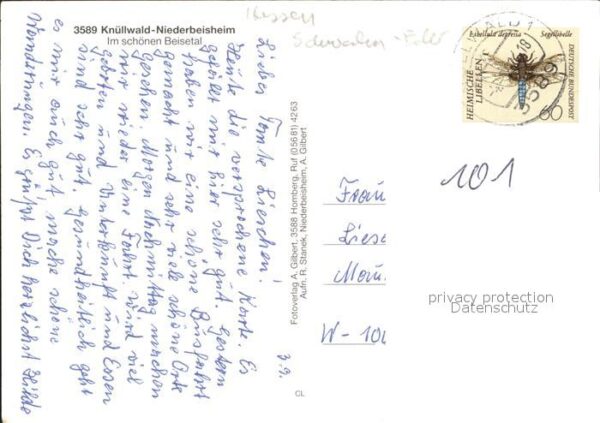 3589 Knüllwald-Niederbeisheim
Im schönen Beisetal
Hessen
Schwalm-Eder
3.9.
Liebes Tante Lieschen!
Heute die versprochene Karte. Es
gefällt mir hier sehr gut. Gestern
haben wir eine schöne Busfahrt
gemacht und sehr viele schöne Orte
gesehen. Morgen Nachmittag machen
wir wieder eine Fahrt. Wird viel
geboten und Unterkunft und Essen
sind sehr gut. Gesundheitlich geht
es mir auch gut, mache schöne
Wanderungen. Es grüßt Dich herzlichst Hilde
Fotoverlag A. Gilbert, 3588 Homberg, Ruf (05681) 4263
Aufn. R. Stanek, Niederbeisheim, A. Gilbert
CL
Libellula depressa Segellibelle
HEIMISCHE
LIBELLEN
DEUTSCHE BUNDESPOST
60
KNÜLLWALD 1
3589
101
Frau
Liese
Mau
W-100
privacy protection
Datenschutz